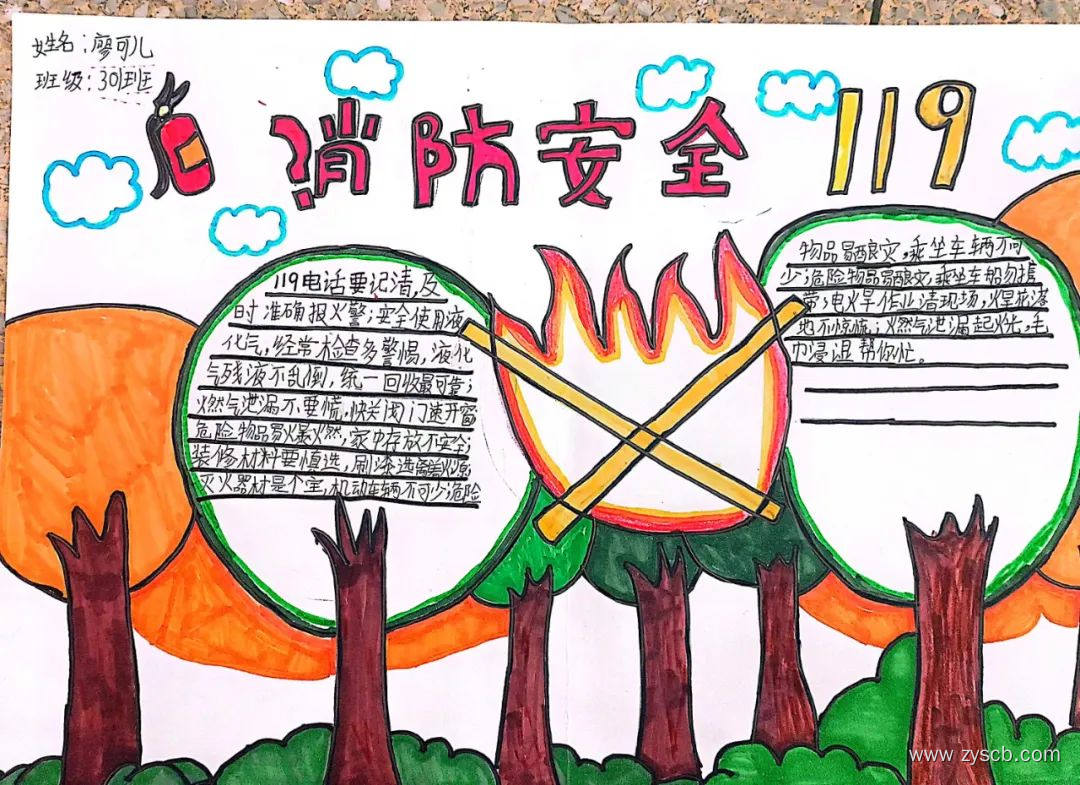 姓名：廖可儿
班级：301班
消防安全 119
119电话要记清,及
时准确报火警；安全使用液
化气，经常检查多警惕，液化
气残液不乱倒，统一回收最可靠；
燃气泄漏不要慌，快关阀门速开窗
危险物品易火燃，家中存放不安全；
装修材料要慎选，刷漆选离火源
灭火器材是个宝，机动车辆不可少危险
物品易酿灾，乘坐车辆不可
少危险物品易酿灾，乘坐车船勿携
带；电火旱作业清现场，火星落
地不惊慌；燃气泄漏起火光，毛
巾浸湿帮你忙。
www.zyscb.com